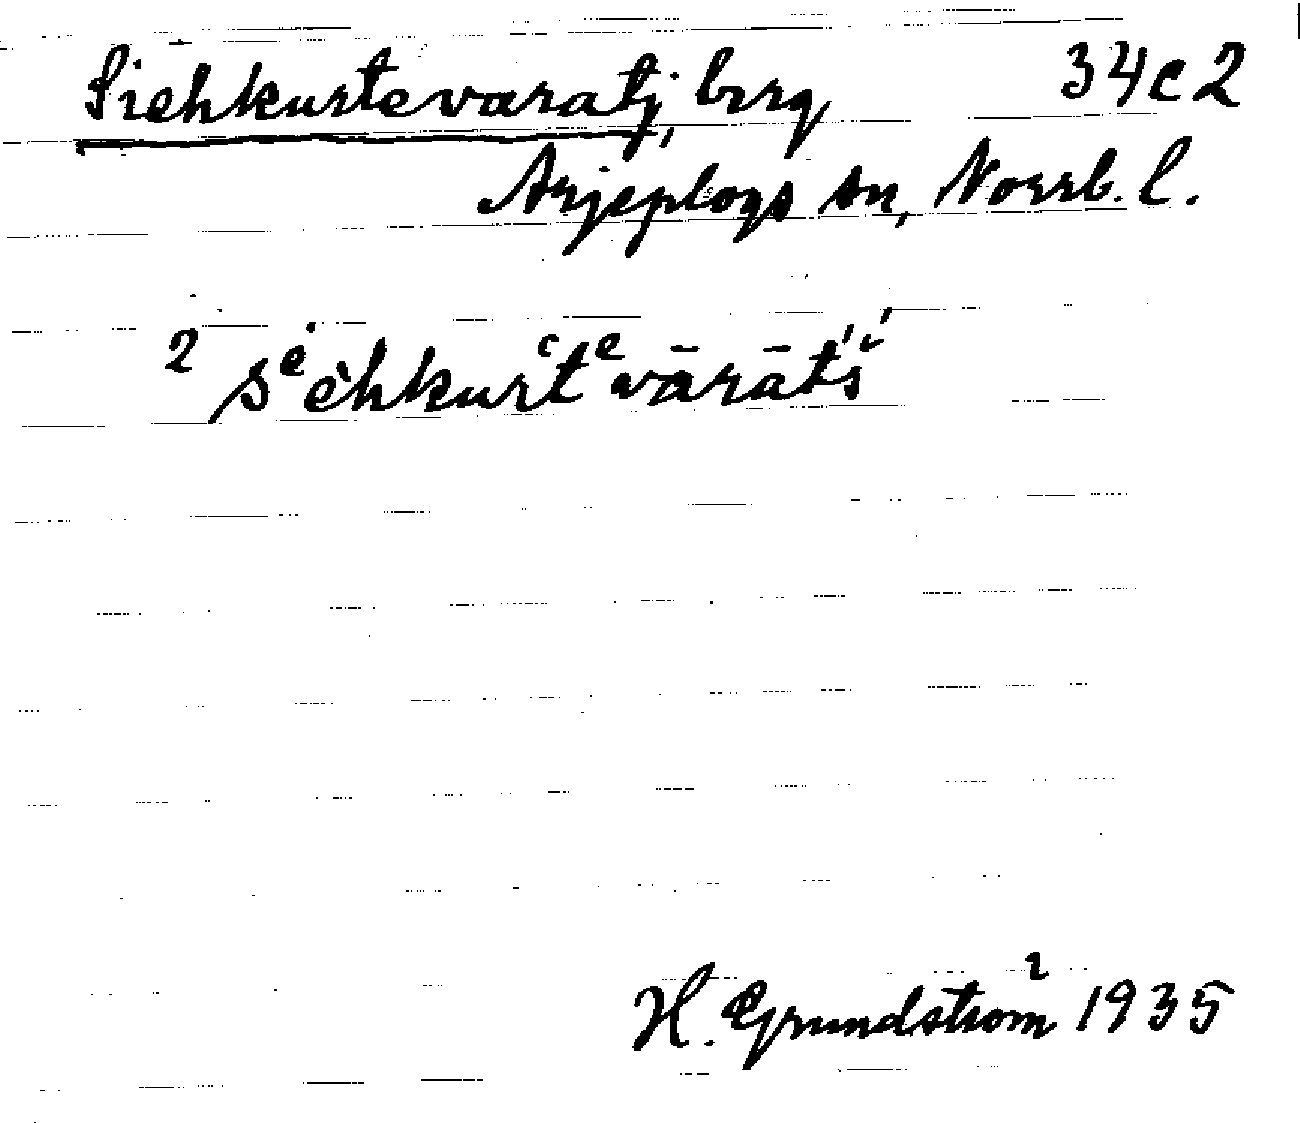 Siehkurtevaratj, berg 34c2
Arjeplogs sn, Norrb. l.
² sᵉèhkurt‘ᵉvārāt́ś
H. Grundström 1935